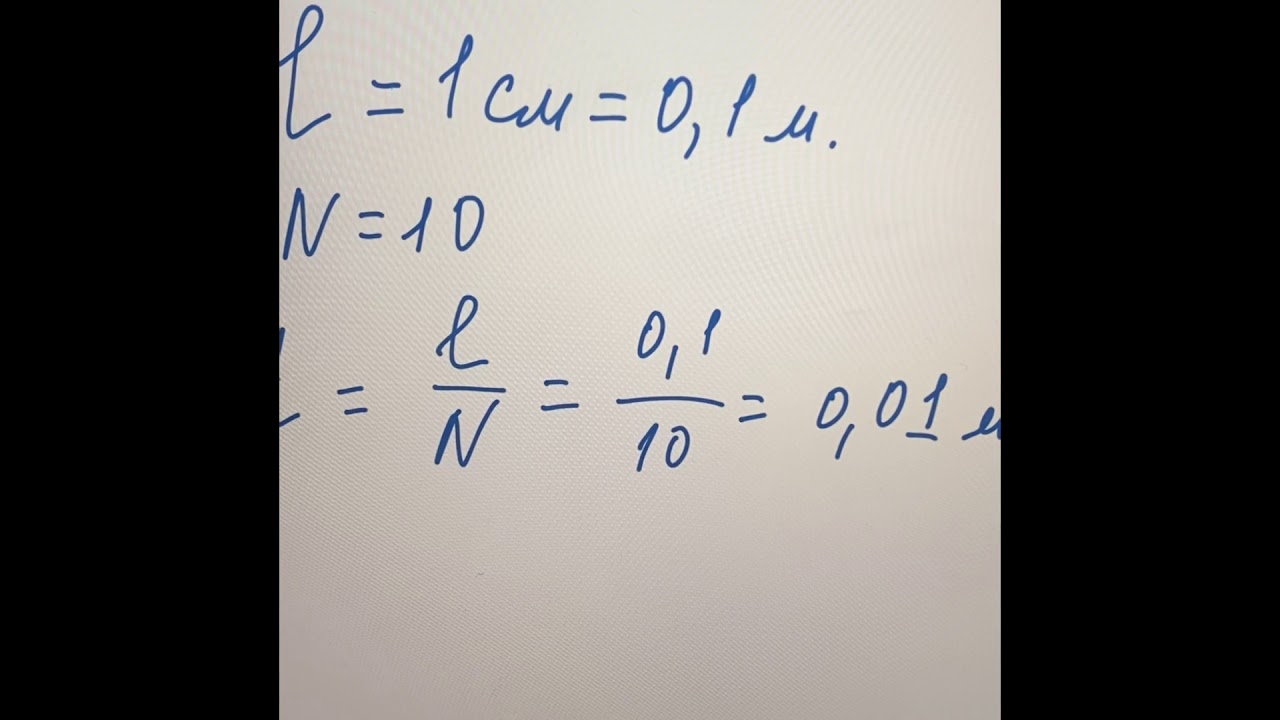 l = 1 см = 0,1 м.
N = 10
= l/N = 0,1/10 = 0,01 м